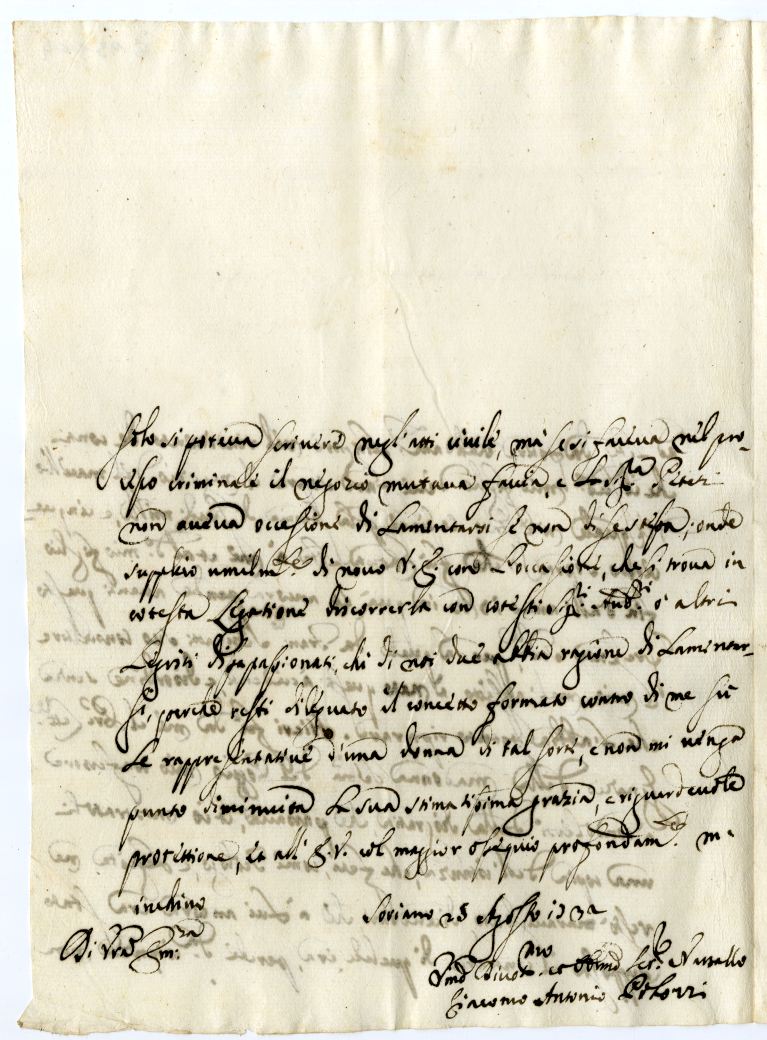 solo si poteva scrivere negl'atti civile, mà se si faceva nel pro-
cesso criminale il negozio mutava faccia, e la Sig.ra
non aveva occasione di lamentarsi se non di se stessa; onde
supplico umilm.te di novo V. E. con l'occasione, che si trova in
cotesta Legatione discorrerla con cotesti Sig.ri Aud.ri ò altri
Legisti dispassionati, chi di noi due abbia ragione di lamentar-
si, perche resti dileguato il concetto formato contro di me sù
le rappresentative d'una donna di tal sorte, e non mi venga
punto diminuita la sua stimatissima grazia, e riguardevole
protettione, et all' E. V. col maggior ossequio profondam.te m'
inchino
Soriano 25 Agosto 1732
Di Vra Em.za
Vmo Divot.mo et Obbmo Ser.re Vassallo
Giacomo Antonio